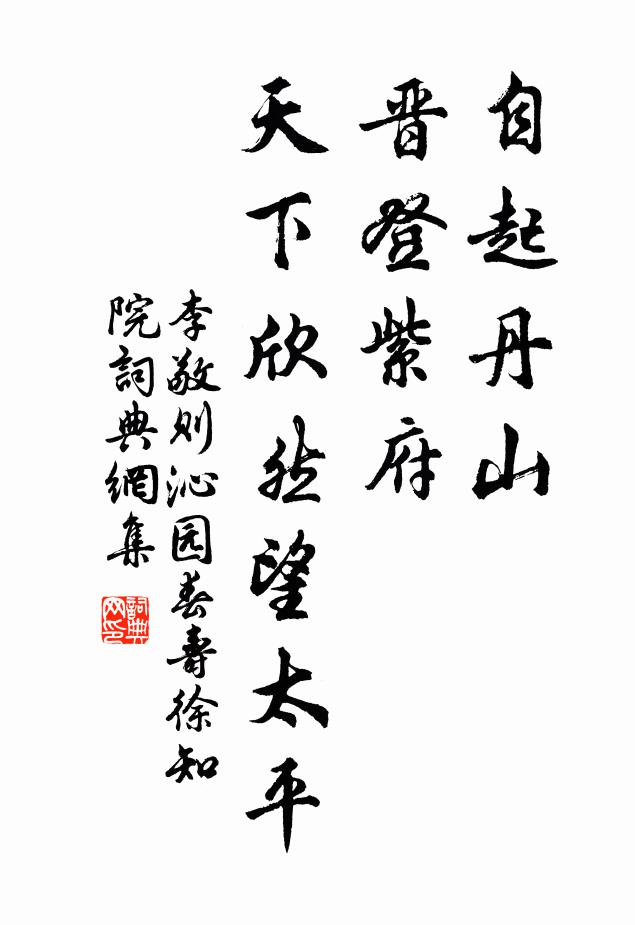 自起丹山
晋登紫府
天下欣然望太平
李敬则沁园春寿徐知
院詞典網集
詞典
网印